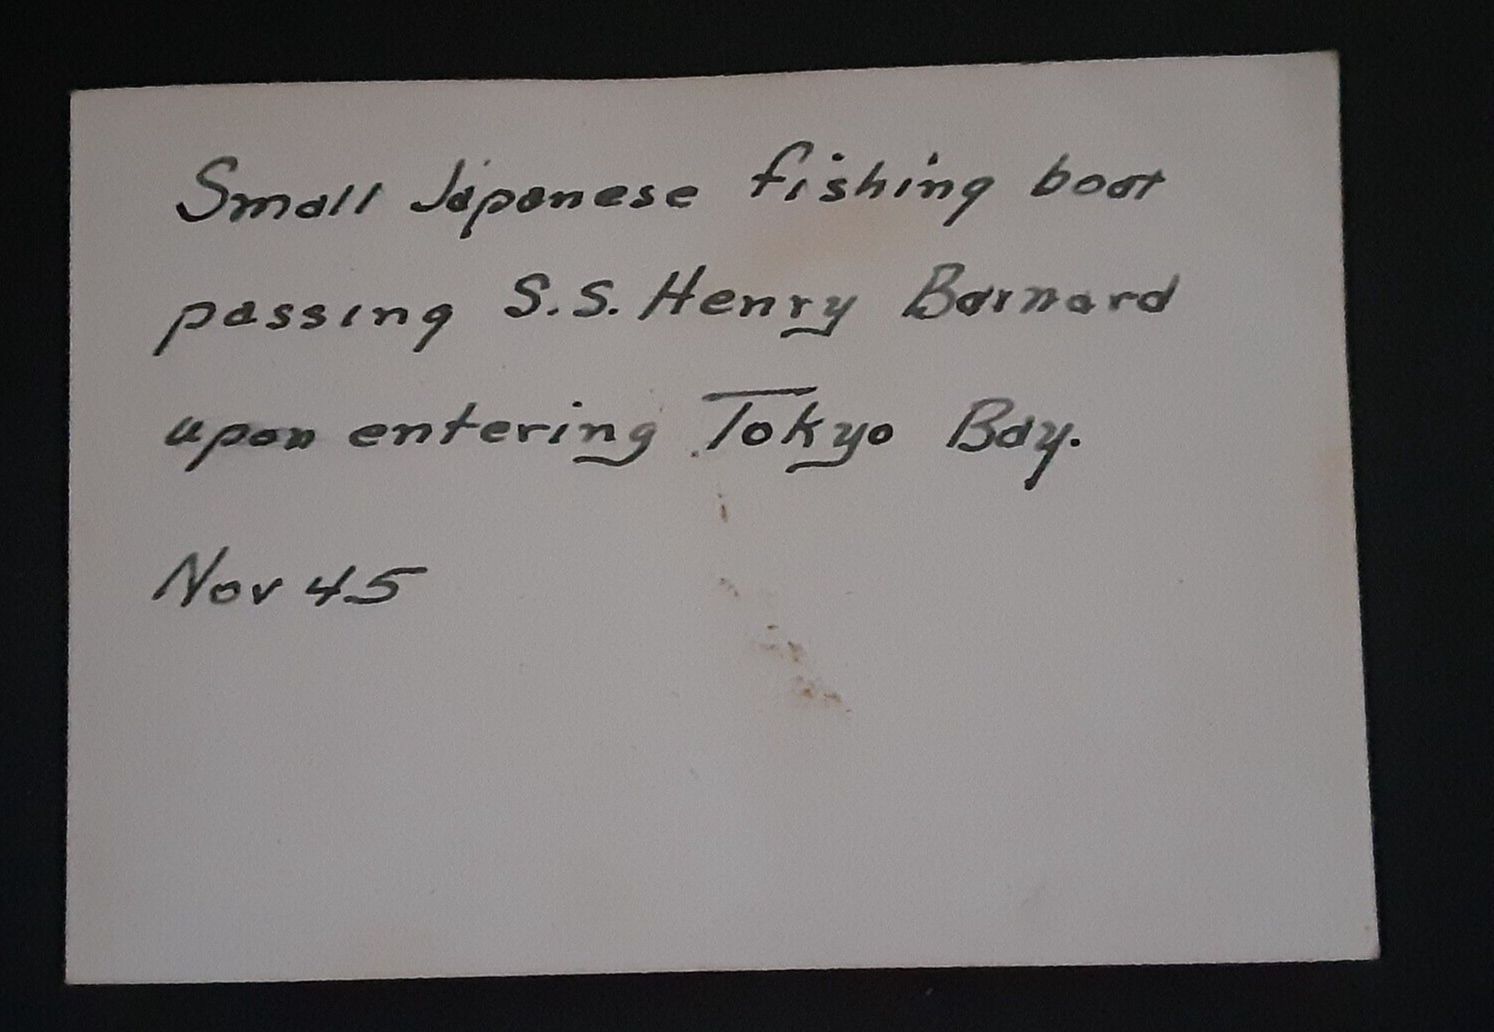 Small Japanese fishing boat
passing S.S. Henry Barnard
upon entering Tokyo Bay.
Nov 45